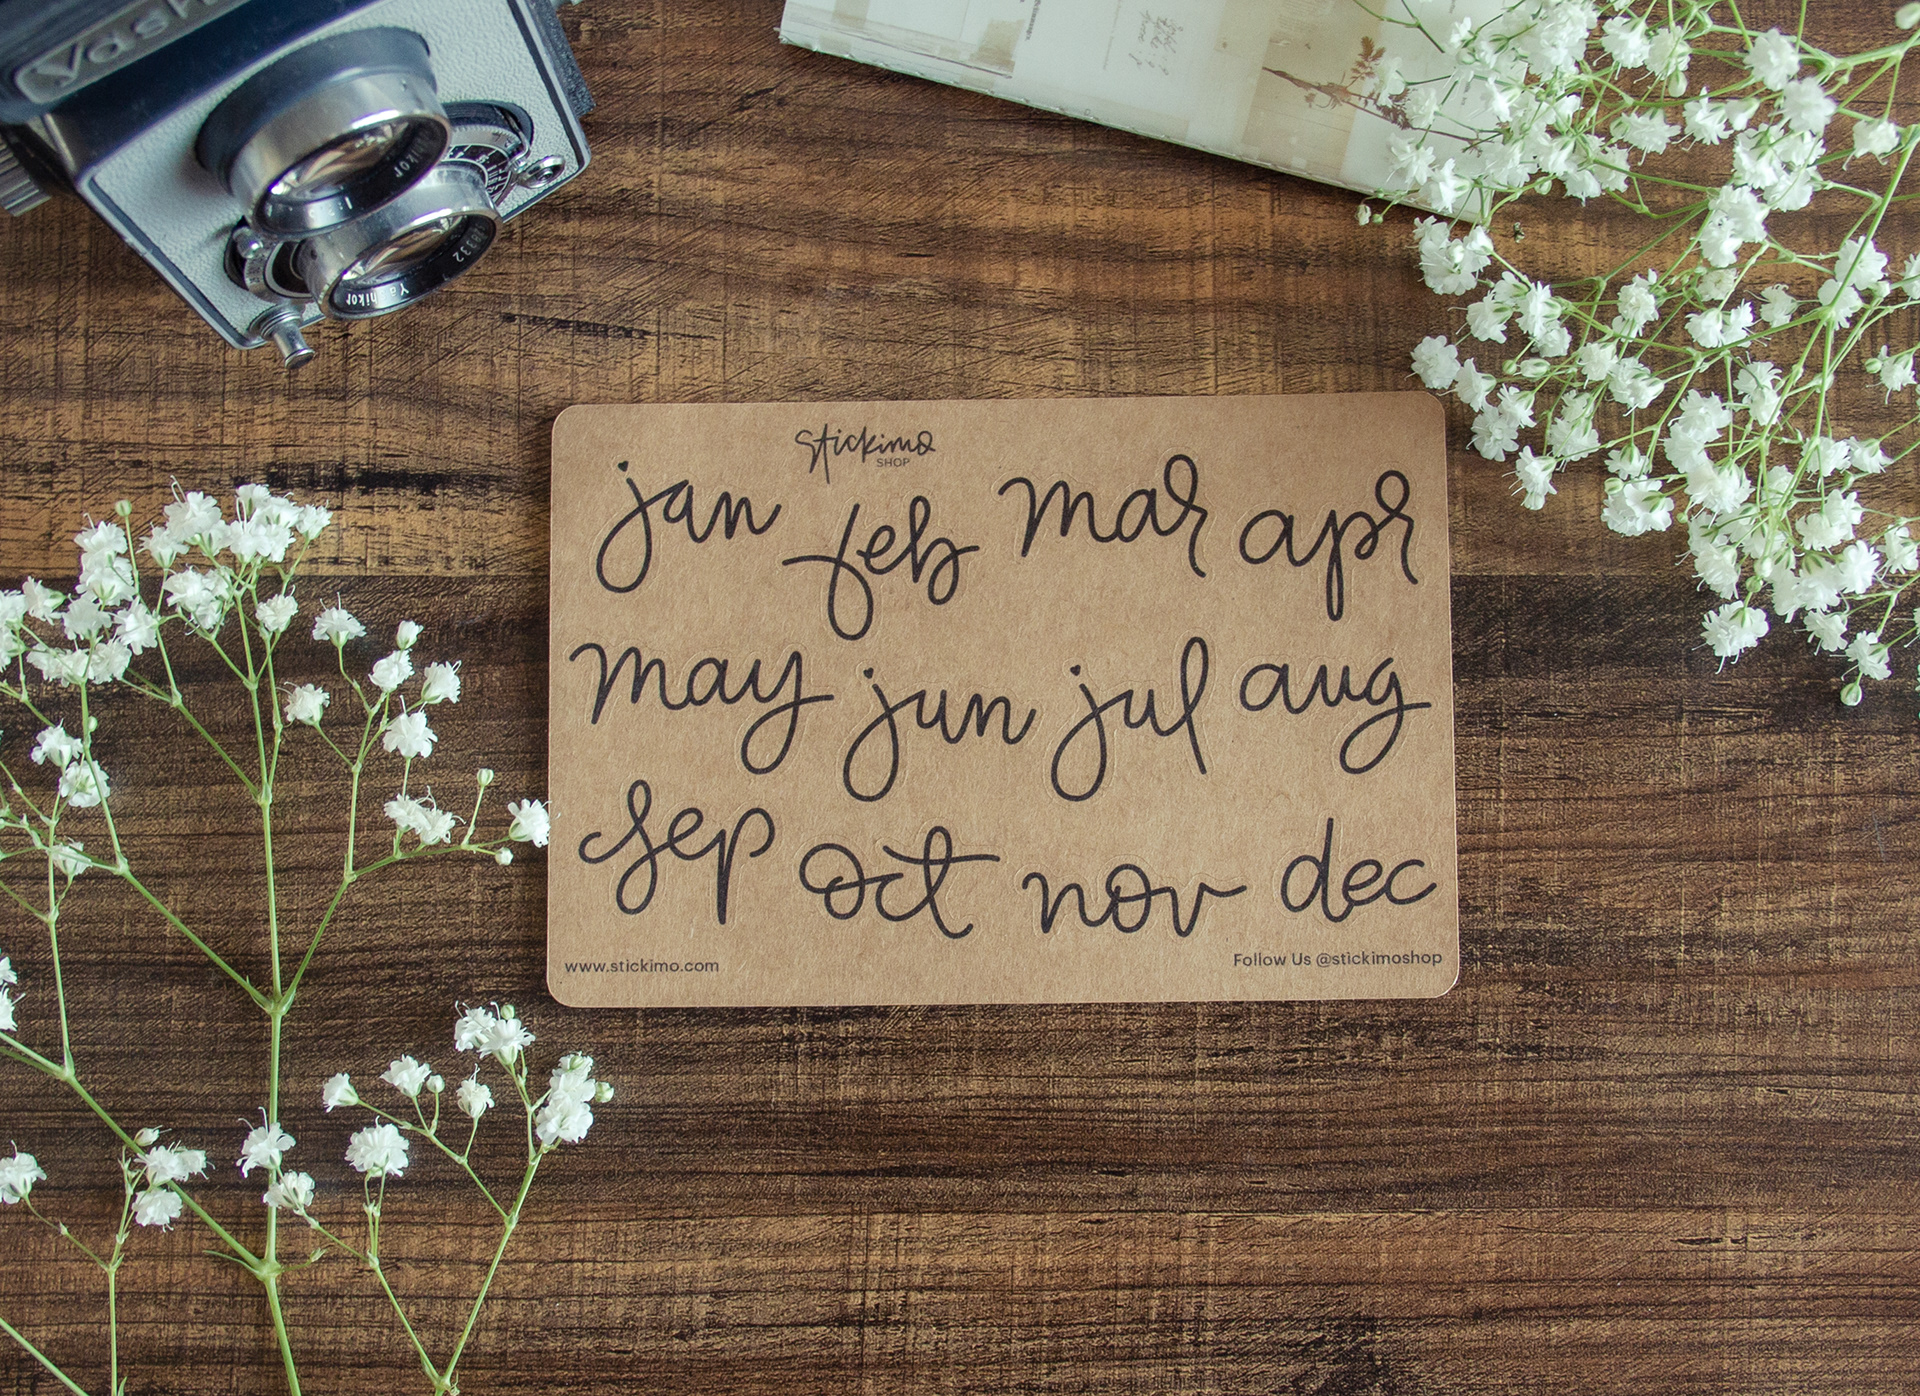 Yash
Yashikor
Stickimo
SHOP
jan feb mar apr
may jun jul aug
sep oct nov dec
www.stickimo.com
Follow Us @stickimoshop